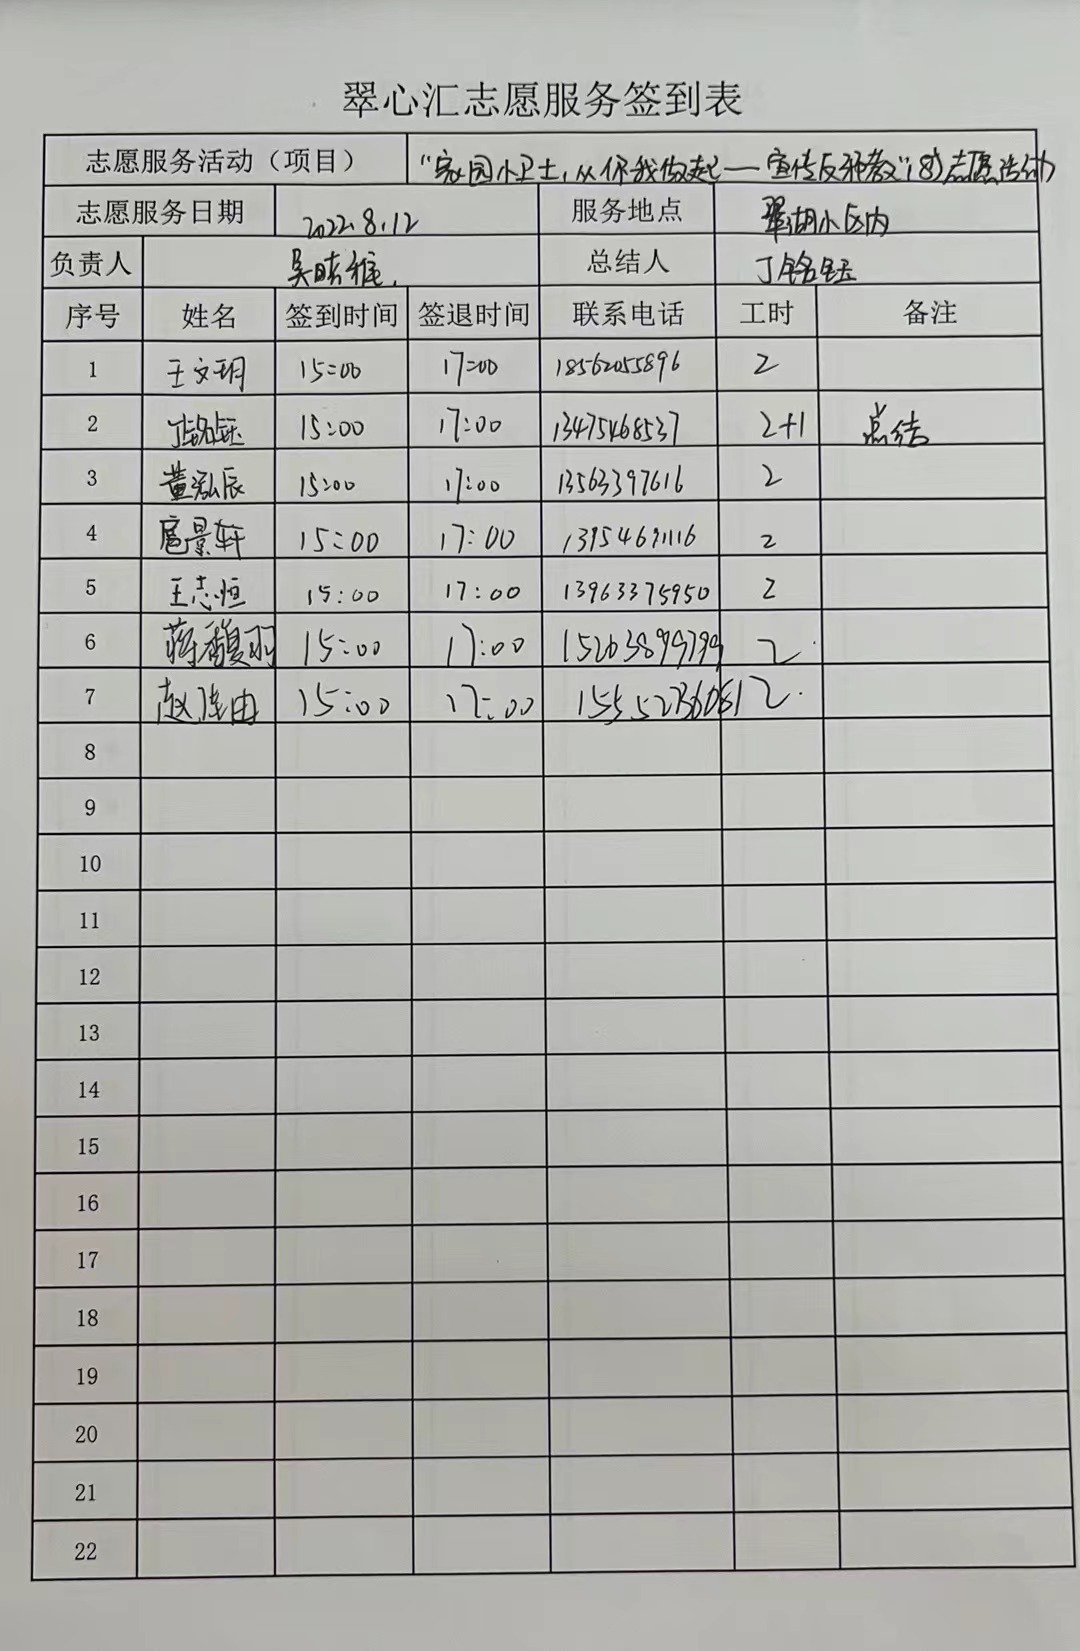 翠心汇志愿服务签到表
志愿服务活动（项目） "家园小卫士，从你我做起——宣传反邪教"(8)志愿活动
志愿服务日期 2022.8.12 服务地点 翠湖小区内
负责人 吴 总结人 丁铭钰
序号 姓名 签到时间 签退时间 联系电话 工时 备注
1 王文玥 15:00 17:00 18562055896 2
2 丁铭钰 15:00 17:00 13475468537 2+1 总结
3 董泓辰 15:00 17:00 13563397616 2
4 扈景轩 15:00 17:00 13954691116 2
5 王志恒 15:00 17:00 13963375950 2
6 蒋馥羽 15:00 17:00 2
7 赵佳由 15:00 17:00 2
8
9
10
11
12
13
14
15
16
17
18
19
20
21
22